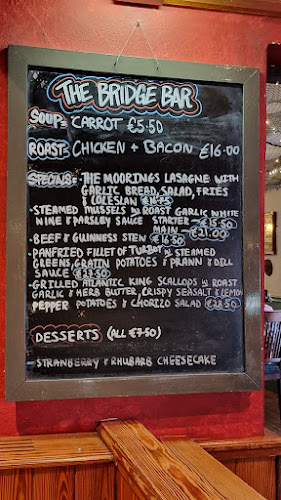 THE BRIDGE BAR
SOUP:- CARROT €5.50
ROAST:- CHICKEN + BACON €16.00
SPECIALS:- THE MOORINGS LASAGNE WITH
GARLIC BREAD, SALAD, FRIES
& COLESLAW
- STEAMED MUSSELS W ROAST GARLIC WHITE
WINE & PARSLEY SAUCE STARTER - €15.50
MAIN - €21.00
- BEEF & GUINNESS STEW €16.50
- PANFRIED FILLET OF TURBOT W STEAMED
GREENS, GRATIN POTATOES & PRAWN & DILL
SAUCE €27.50
- GRILLED ATLANTIC KING SCALLOPS W ROAST
GARLIC & HERB BUTTER, CRISPY SEASALT & LEMON
PEPPER POTATOES & CHORIZO SALAD €28.50
DESSERTS (ALL €7.50)
- STRAWBERRY & RHUBARB CHEESECAKE